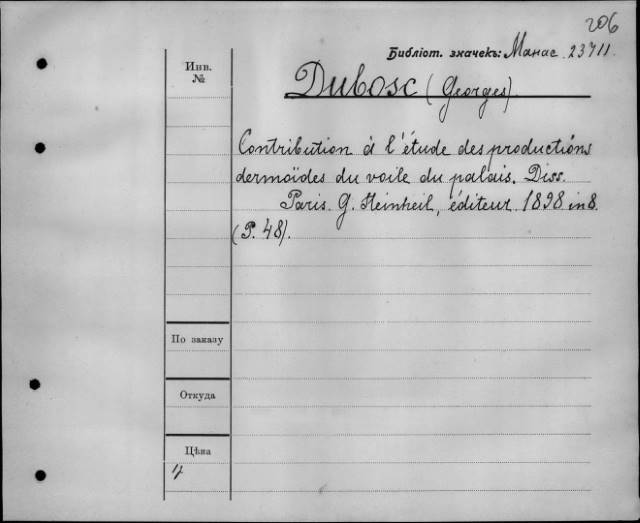 206
Библіот. значекъ: Манас. 23711.
Инв.
№
Dubosc (Georges).
Contribution à l'étude des productions
dermoïdes du voile du palais. Diss.
Paris. G. Steinheil, éditeur. 1898 in 8.
(P. 48).
По заказу
Откуда
Цѣна
4